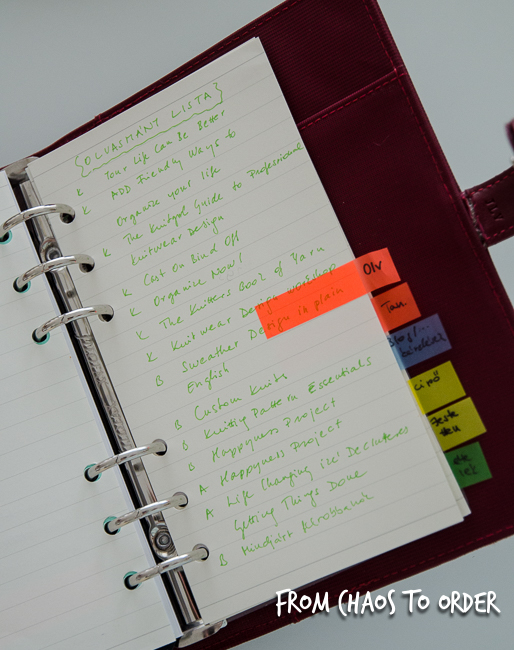 OLVASMÁNY LISTA
K Your Life Can Be Better
K ADD Friendly Ways to
Organize your life
K The Knitgrl Guide to Professional
Knitwear Design
K Cast On Bind Off
K Organize Now!
K The Knitters Book of Yarn
K Knitwear Design workshop
B Sweather Design in plain
English
B Custom Knits
B Knitting Pattern Essentials
B Happyness Project
A Happyness Project
A Life Changing Declutering
Getting Things Done
B Mindjárt
Olv
Tan.
Blog/...
FROM CHAOS TO ORDER